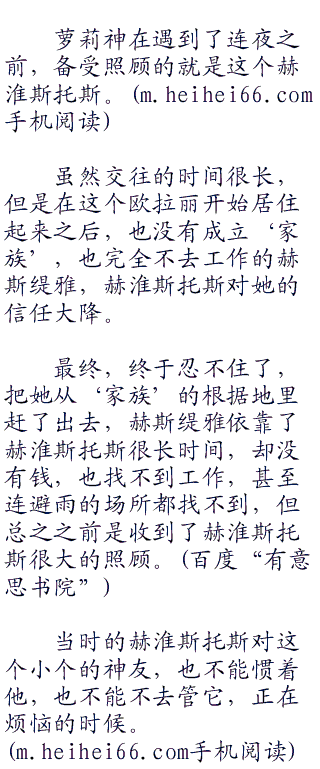 萝莉神在遇到了连夜之
前，备受照顾的就是这个赫
淮斯托斯。(m.heihei66.com
手机阅读)
虽然交往的时间很长，
但是在这个欧拉丽开始居住
起来之后，也没有成立‘家
族’，也完全不去工作的赫
斯缇雅，赫淮斯托斯对她的
信任大降。
最终，终于忍不住了，
把她从‘家族’的根据地里
赶了出去，赫斯缇雅依靠了
赫淮斯托斯很长时间，却没
有钱，也找不到工作，甚至
连避雨的场所都找不到，但
总之之前是收到了赫淮斯托
斯很大的照顾。(百度“有意
思书院”)
当时的赫淮斯托斯对这
个小个的神友，也不能惯着
他，也不能不去管它，正在
烦恼的时候。
(m.heihei66.com手机阅读)